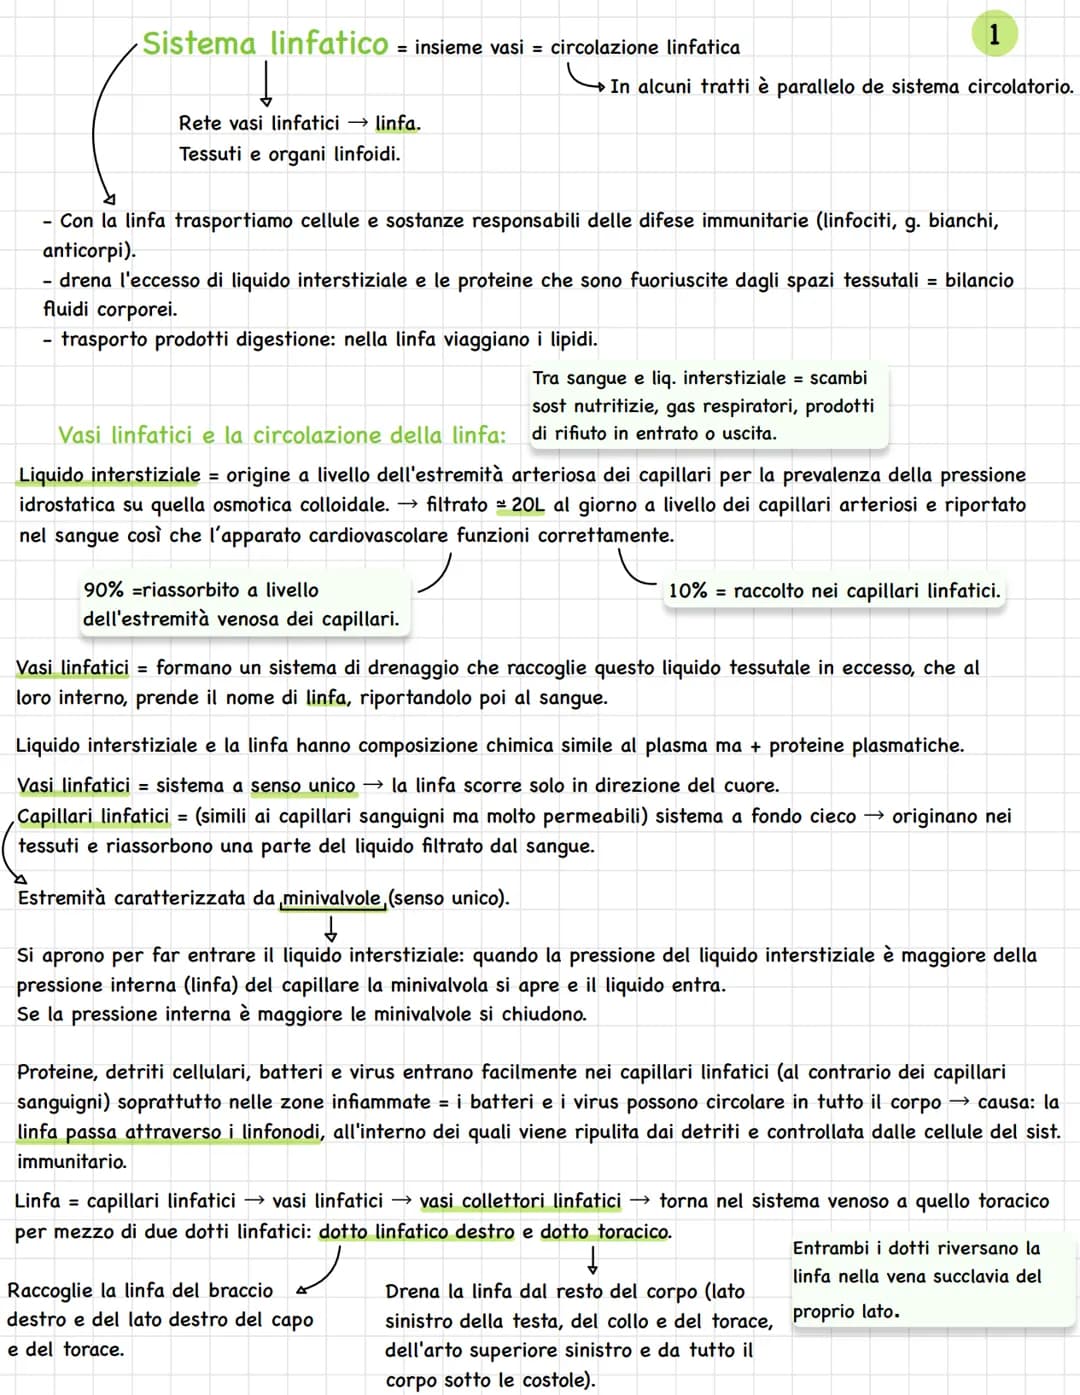 Sistema linfatico = insieme vasi = circolazione linfatica
1
In alcuni tratti è parallelo de sistema circolatorio.
Rete vasi linfatici → linfa.
Tessuti e organi linfoidi.
- Con la linfa trasportiamo cellule e sostanze responsabili delle difese immunitarie (linfociti, g. bianchi,
anticorpi).
- drena l'eccesso di liquido interstiziale e le proteine che sono fuoriuscite dagli spazi tessutali = bilancio
fluidi corporei.
- trasporto prodotti digestione: nella linfa viaggiano i lipidi.
Tra sangue e liq. interstiziale = scambi
sost nutritizie, gas respiratori, prodotti
di rifiuto in entrato o uscita.
Vasi linfatici e la circolazione della linfa:
Liquido interstiziale = origine a livello dell'estremità arteriosa dei capillari per la prevalenza della pressione
idrostatica su quella osmotica colloidale. → filtrato ≃ 20L al giorno a livello dei capillari arteriosi e riportato
nel sangue così che l'apparato cardiovascolare funzioni correttamente.
90% =riassorbito a livello
dell'estremità venosa dei capillari.
10% = raccolto nei capillari linfatici.
Vasi linfatici = formano un sistema di drenaggio che raccoglie questo liquido tessutale in eccesso, che al
loro interno, prende il nome di linfa, riportandolo poi al sangue.
Liquido interstiziale e la linfa hanno composizione chimica simile al plasma ma + proteine plasmatiche.
Vasi linfatici = sistema a senso unico → la linfa scorre solo in direzione del cuore.
Capillari linfatici = (simili ai capillari sanguigni ma molto permeabili) sistema a fondo cieco → originano nei
tessuti e riassorbono una parte del liquido filtrato dal sangue.
Estremità caratterizzata da minivalvole (senso unico).
Si aprono per far entrare il liquido interstiziale: quando la pressione del liquido interstiziale è maggiore della
pressione interna (linfa) del capillare la minivalvola si apre e il liquido entra.
Se la pressione interna è maggiore le minivalvole si chiudono.
Proteine, detriti cellulari, batteri e virus entrano facilmente nei capillari linfatici (al contrario dei capillari
sanguigni) soprattutto nelle zone infiammate = i batteri e i virus possono circolare in tutto il corpo → causa: la
linfa passa attraverso i linfonodi, all'interno dei quali viene ripulita dai detriti e controllata dalle cellule del sist.
immunitario.
Linfa = capillari linfatici → vasi linfatici → vasi collettori linfatici → torna nel sistema venoso a quello toracico
per mezzo di due dotti linfatici: dotto linfatico destro e dotto toracico.
Raccoglie la linfa del braccio
destro e del lato destro del capo
e del torace.
Drena la linfa dal resto del corpo (lato
sinistro della testa, del collo e del torace,
dell'arto superiore sinistro e da tutto il
corpo sotto le costole).
Entrambi i dotti riversano la
linfa nella vena succlavia del
proprio lato.